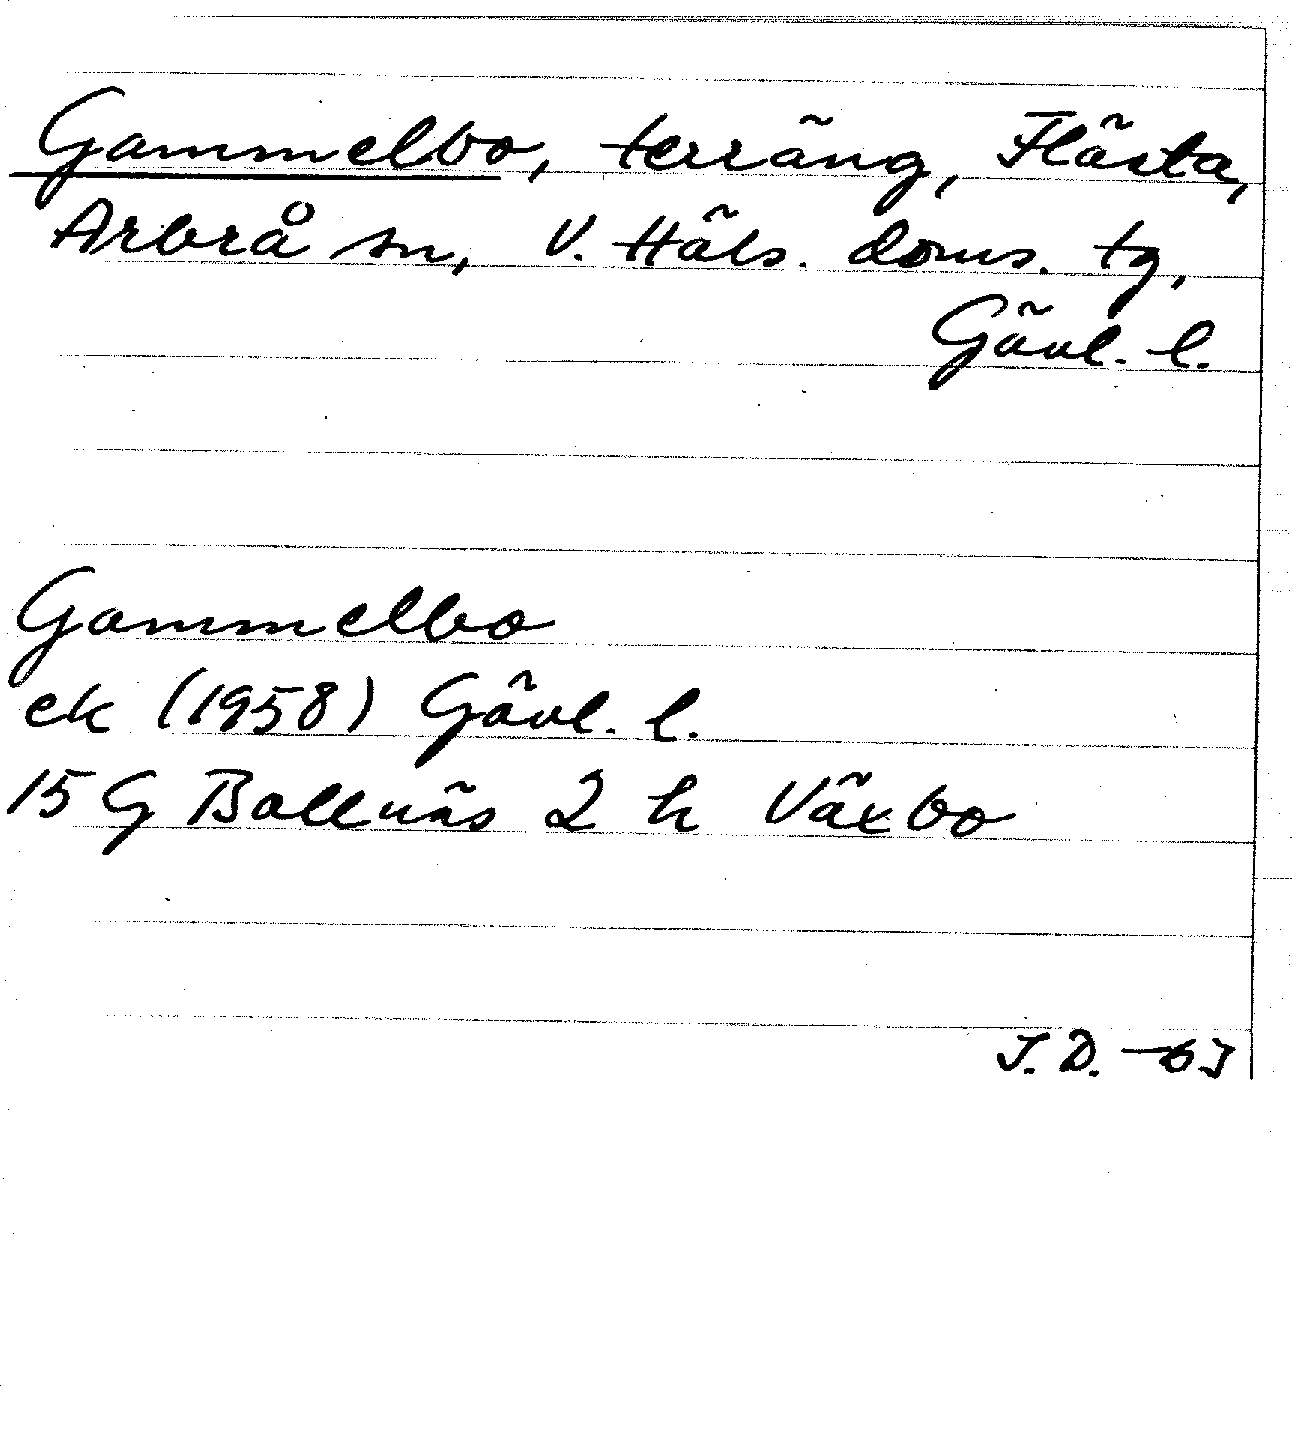 Gammelbo, terräng, Flästa,
Arbrå sn, V. Häls. doms. tg,
Gävl. l.
Gammelbo
ek (1958) Gävl. l.
15 G Bollnäs 2 h Växbo
J.D. -63